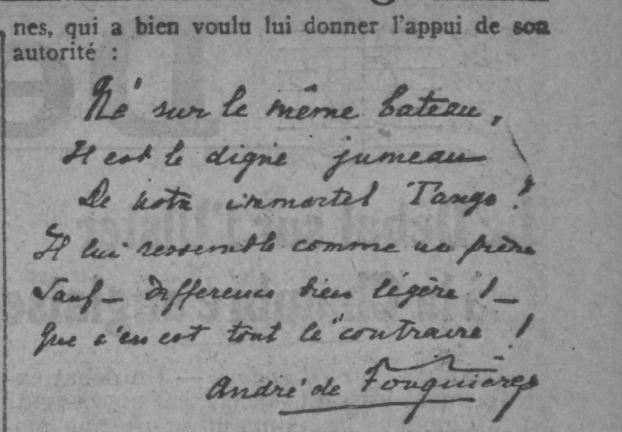 nes, qui a bien voulu lui donner l'appui de son
autorité :
Né sur le même bateau,
Il est le digne jumeau
De notre immortel Tango !
Il lui ressemble comme un frère
Sauf — différence bien légère ! —
Que c'en est tout le contraire !
André de Fouquières